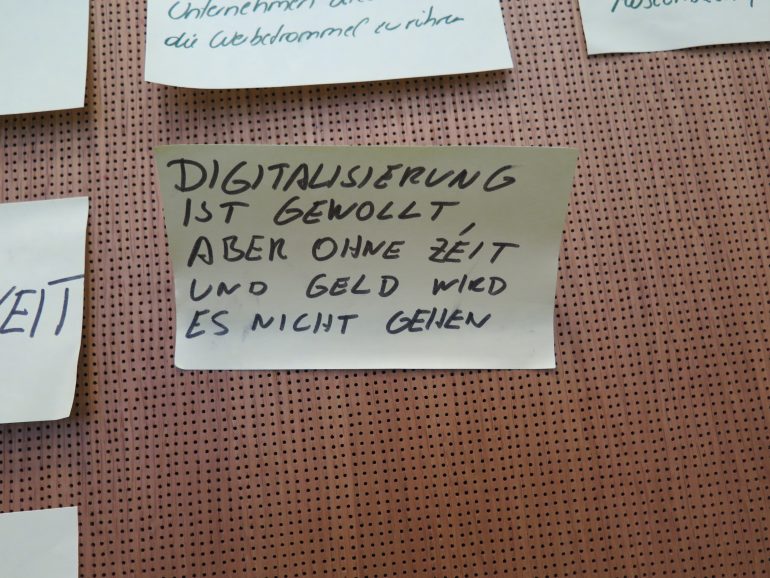 Unternehmen
die Werbetrommel zu rühren
DIGITALISIERUNG
IST GEWOLLT,
ABER OHNE ZEIT
UND GELD WIRD
ES NICHT GEHEN
EIT